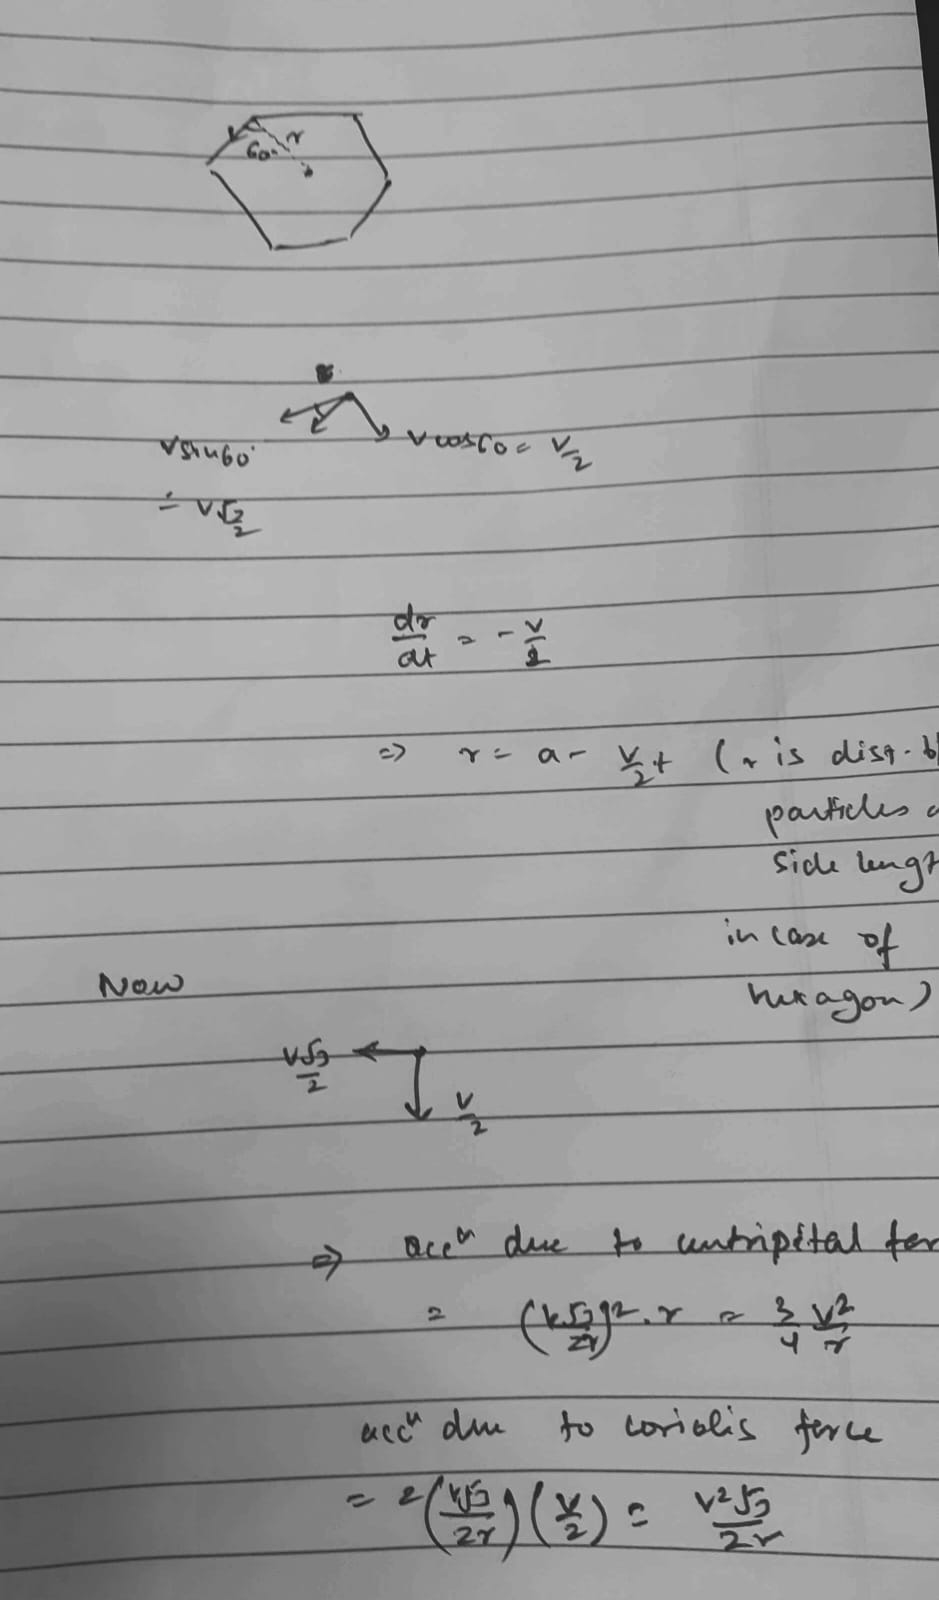 60° r
v sin60° v cos60 = v/2
= v√3/2
dr/dt = -v/2
=> r = a - v/2 t (r is dist. b/
particles a
side lengt
in case of
hexagon)
Now
v√3/2
v/2
=> accn due to centripetal for
= (v√3/2r)². r = 3/4 v²/r
accn due to coriolis force
= 2(v√3/2r)(v/2) = v²√3/2r